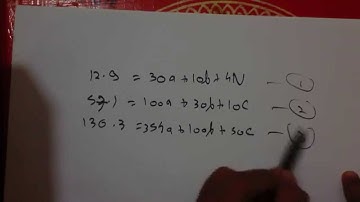 12.9 = 30a + 10b + 4N — ①
521 = 100a + 30b + 10C — ②
130.3 = 354a + 100b + 30C —